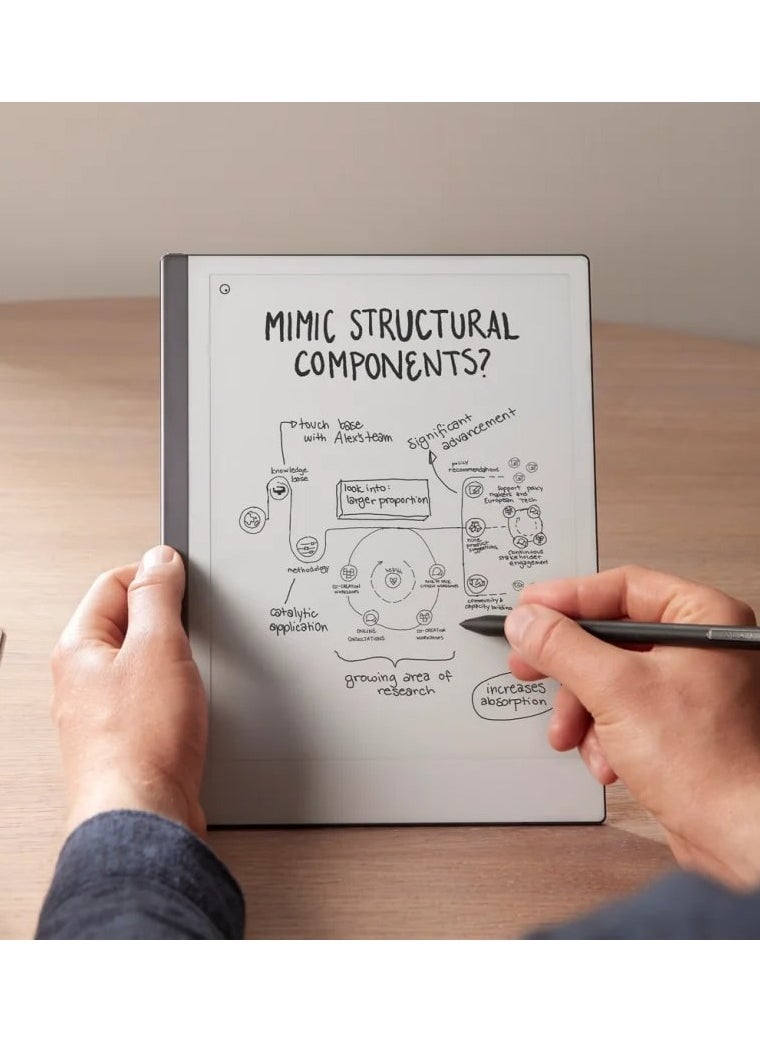 MIMIC STRUCTURAL
COMPONENTS?
touch base
with Alex's team
significant
advancement
knowledge
base
look into:
larger proportion
policy
recommendations
support policy
makers and
European Tech
methodology
continuous
stakeholder
engagement
catalytic
application
CO-CREATION
WORKSHOPS
FACE TO FACE
CITIZEN WORKSHOPS
community &
capacity building
ONLINE
CONSULTATIONS
CO-CREATION
WORKSHOPS
growing area of
research
increases
absorption